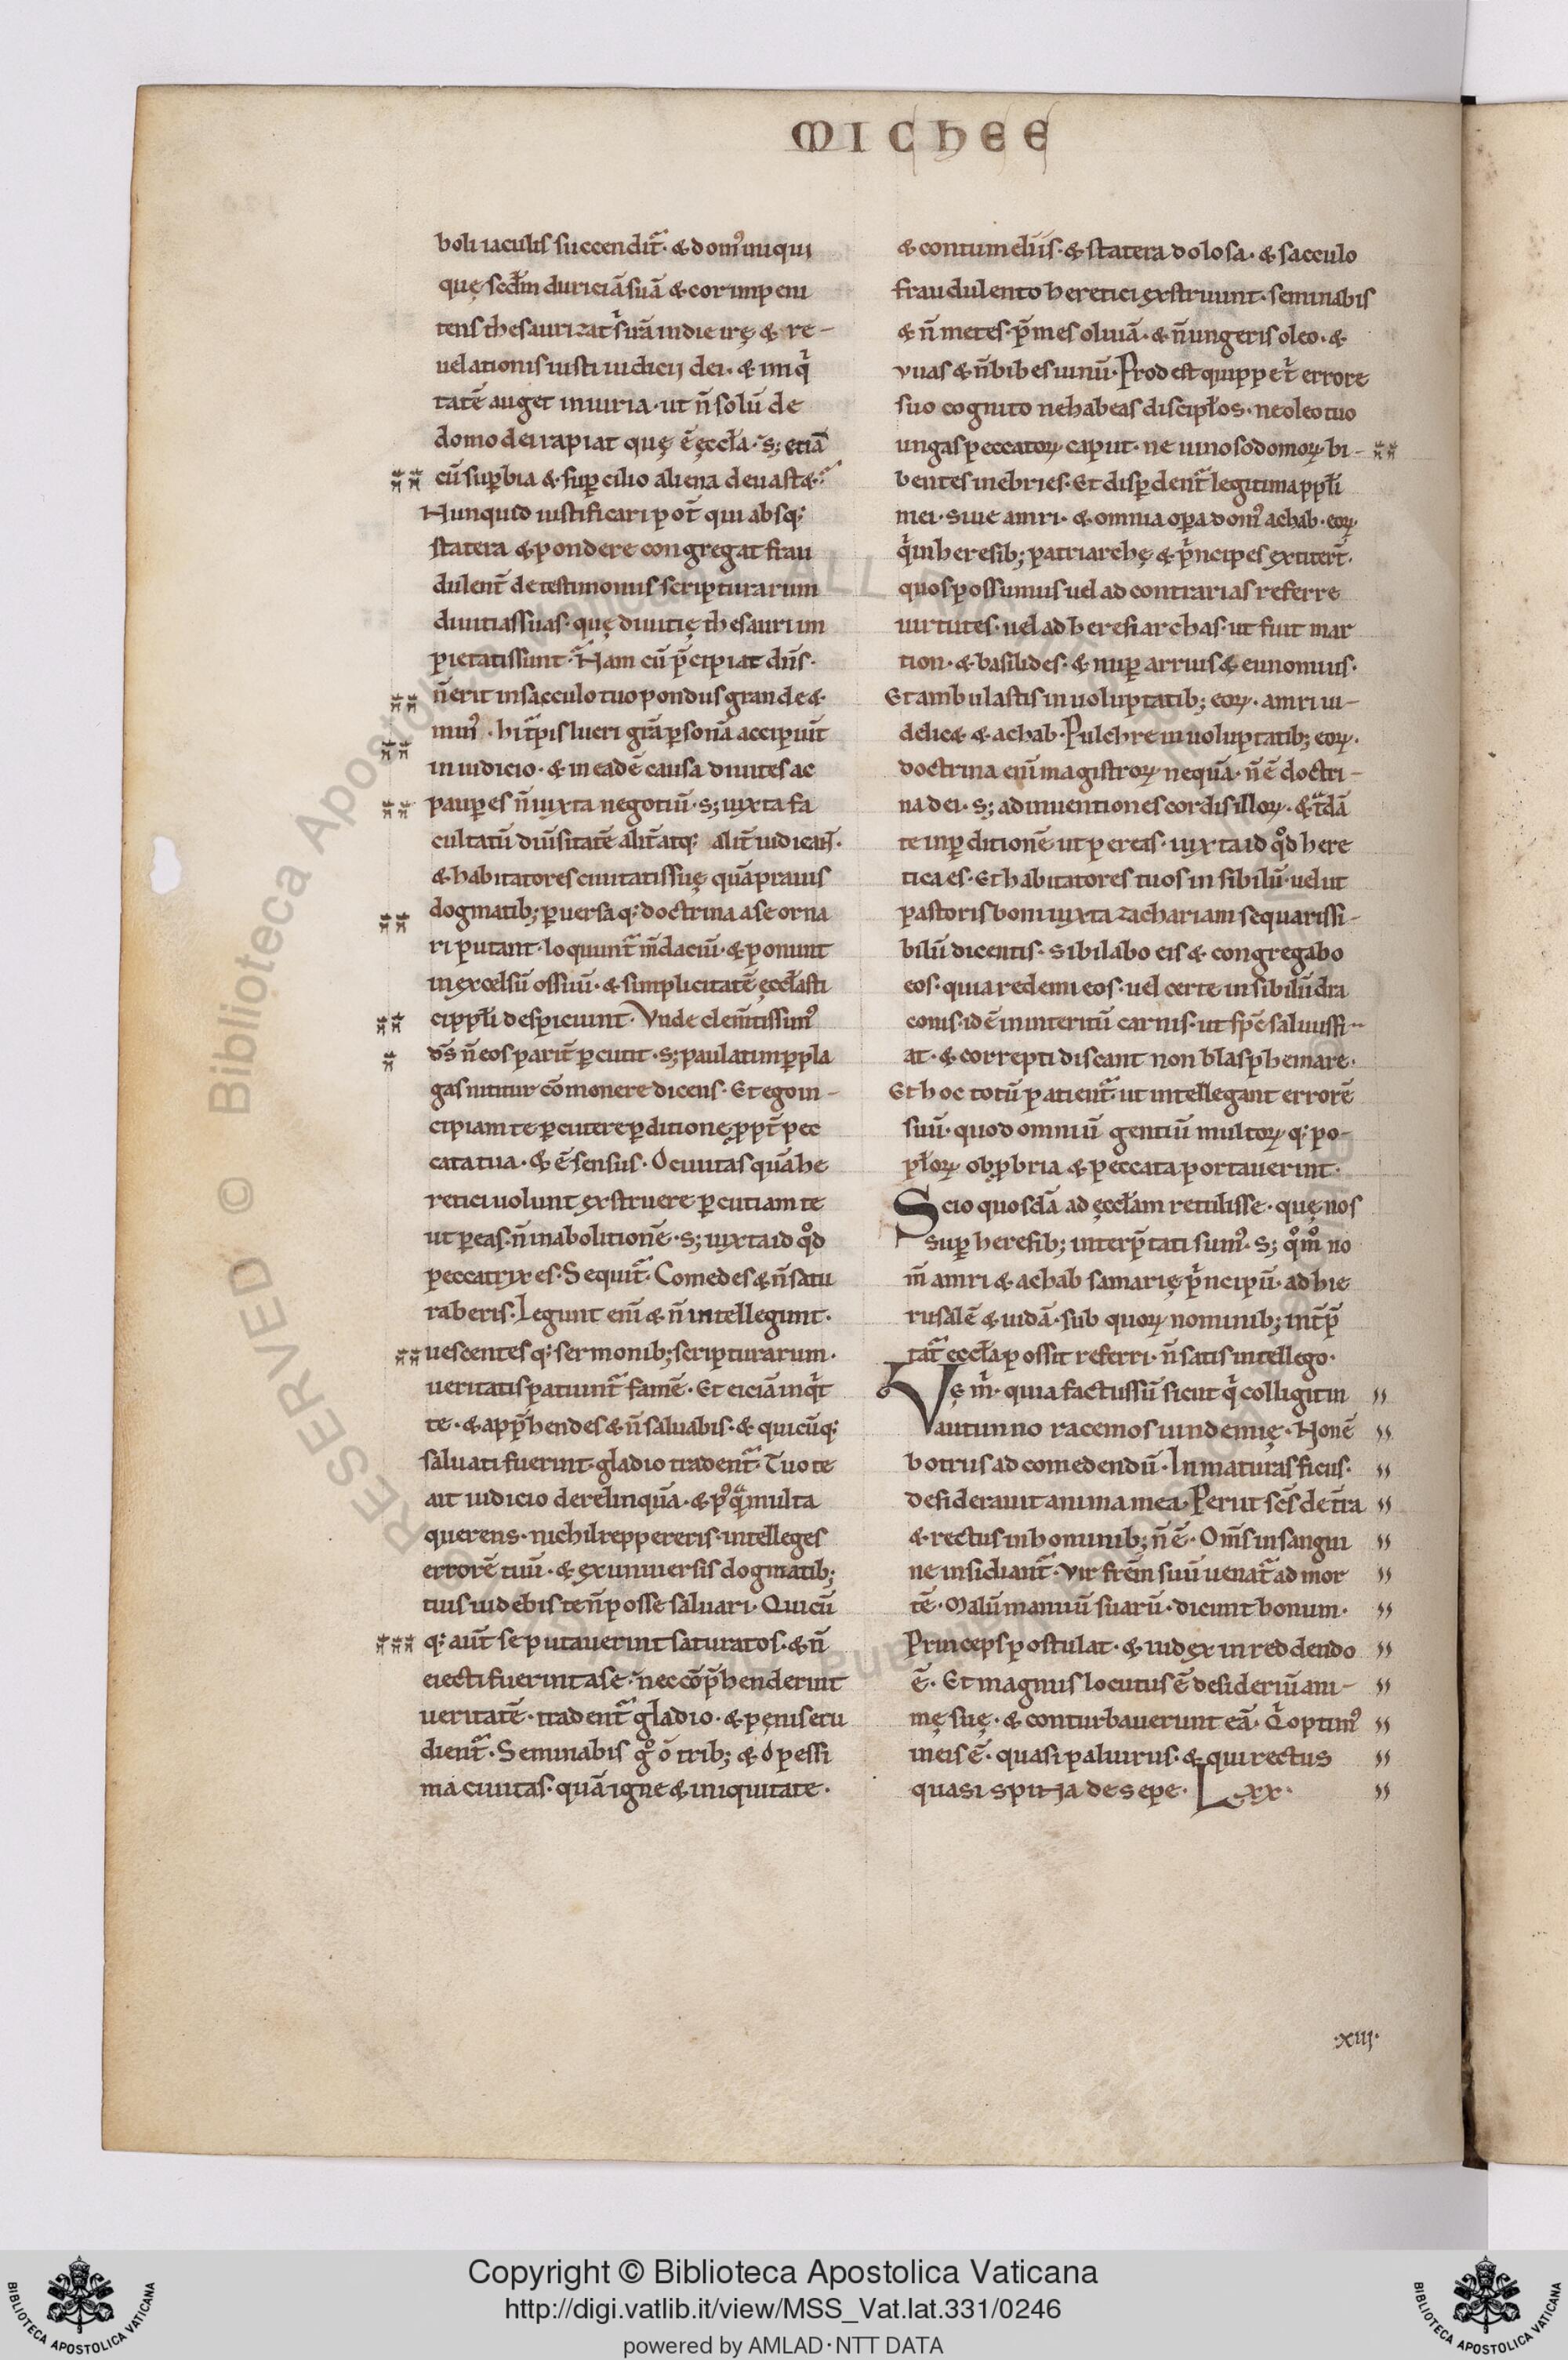 MICHEE
boli iaculis succendit᷑. & dom᷒ iniqui
quę scd̄m duriciā suā & cor impeni
tens thesaurizat s᷑uā in die irę & re-
uelationis iusti iudicij dei. & iniq᷑
tatē auget iniuria. ut n̄ solū de
domo dei rapiat quę ē ęccła. s; etiā
cū suꝑbia & suꝑcilio aliena deuast&.
Nunquid iustificari pot̄ qui absq;
statera & pondere congregat frau
dulent̄ de testimoniis scripturarum
diuitias suas. quę diuitię thesauri im
pietatis sunt. Nam cū p̄cipiat dn̄s.
n̄ erit in sacculo tuo pondus grande &
min᷒. hi t᷑pis lucri gr̄a ꝑsonā accipiūt
in iudicio. & in eadē causa diuites ac
pauꝑes n̄ iuxta negotiū. s; iuxta fa
cultatū diūsitatē alit̄ atq; alit̄ iudicant̄.
& habitatores ciuitatis suę quā prauis
dogmatib; ꝑuersaq; doctrina a se orna
ri putant. loquunt᷑ m̄daciū. & ponunt
in excelsū os suū. & simplicitatē ęccłasti
ci ppłi despiciunt. Vnde clem̄tissim᷒
ds̄ n̄ eos parit̄ ꝑcutit. s; paulatim ꝑ pla
gas nititur cōmonere dicens. Et ego in-
cipiam te ꝑcutere ꝑditione ꝓpt̄ pec
cata tua. & ē sensus. O ciuitas quā he
retici uolunt exstruere ꝑcutiam te
ut ꝑeas. n̄ in abolitionē. s; iuxta id qͦd
peccatrix es. Sequit᷑. Comedes & n̄ satu
raberis. Legunt eni᷒ & n̄ intellegunt.
uescentesq; sermonib; scripturarum.
ueritatis patiunt᷑ famē. Et eiciā inq᷑t
te. & app̄hendes & n̄ saluabis. & quicūq;
saluati fuerint. gladio tradent᷑. Tuo te
ait iudicio derelinquā. & p᷒qͣ multa
querens. nichil reppereris. intelleges
errorē tuū. & ex uniuersis dogmatib;
tuis uidebis te n̄ posse saluari. Quicū
q; aut̄ se putauerint saturatos. & n̄
eiecti fuerint a se. nec cōp̄henderint
ueritatē. tradent᷑ gladio. & pęnis etu
dient᷑. Seminabis gͦ o trib; & o pessi
ma ciuitas. quā igne & iniquitate.
& contumeliis. & statera dolosa. & sacculo
fraudulento heretici exstruunt. seminabis
& n̄ metes. p̄mes oliuā. & n̄ ungeris oleo. &
vuas & n̄ bibes uinū. Prodest quippe t᷑ errore
suo cognito ne habeas discipłos. ne oleo tuo
ungas peccatoꝝ caput. ne uino sodomoꝝ bi-
bentes inebries. Et disꝑdent᷑ legitima ppłi
mei. siue amri. & omnia oꝑa dom᷒ achab. eoꝝ
q᷑ in heresib; patriarchę & p᷑ncipes extiter̄t.
quos possumus uel ad contrarias referre
uirtutes. uel ad heresiarchas. ut fuit mar
tion. & basilides. & nuꝑ arrius & eunomius.
Et ambulastis in uoluptatib; eoꝝ. amri ui-
delic& & achab. Pulchre in uoluptatib; eoꝝ.
doctrina eni᷒ magistroꝝ nequā. n̄ ē doctri-
na dei. s; adinuentiones cordis illoꝝ. & t᷑dā
te in ꝑditionē ut pereas. iuxta id qͦd here
tica es. Et habitatores tuos in sibilū. uel ut
pastoris boni iuxta zachariam sequaris si-
bilū dicentis. Sibilabo eis & congregabo
eos. quia redemi eos. uel certe in sibilū dra
conis. id ē in interitū carnis. ut sp̄c saluus fi-
at. & correpti discant non blasphemare.
Et hoc totū patient᷑. ut intellegant errorē
suū. quod omniū gentiū multoꝝq; po-
płoꝝ obꝓbria & peccata portauerint.
Scio quosdā ad ęccłam retulisse. quę nos
suꝑ heresib; interp̄tati sum᷒. s; qͦm̊ no
m̄ amri & achab samarię p᷑ncipū. ad hie
rusalē & iudā. sub quoꝝ nominib; int̄p̄
tat᷑ eccła possit referri. n̄ satis intellego.
Vę m᷑. quia factus sū sicut q᷑ colligit in
autunno racemos uindemię. Non ē
botrus ad comedendū. In maturas ficus.
desiderauit anima mea. Periit scs̄ de t̄ra
& rectus in hominib; n̄ ē. Om̄s in sangui
ne insidiant᷑. Vir fr̄em suū uenat᷑ ad mor
tē. Malū manuū suarū. dicunt bonum.
Princeps postulat. & iudex in reddendo
ē. Et magnus locutus ē desideriū ani-
mę suę. & conturbauerunt eā. Q᷑ optim᷒
in eis ē. quasi paliurus. & qui rectus
quasi spina de sepe. Lxx.
.xiij.
Copyright © Biblioteca Apostolica Vaticana
http://digi.vatlib.it/view/MSS_Vat.lat.331/0246
powered by AMLAD·NTT DATA